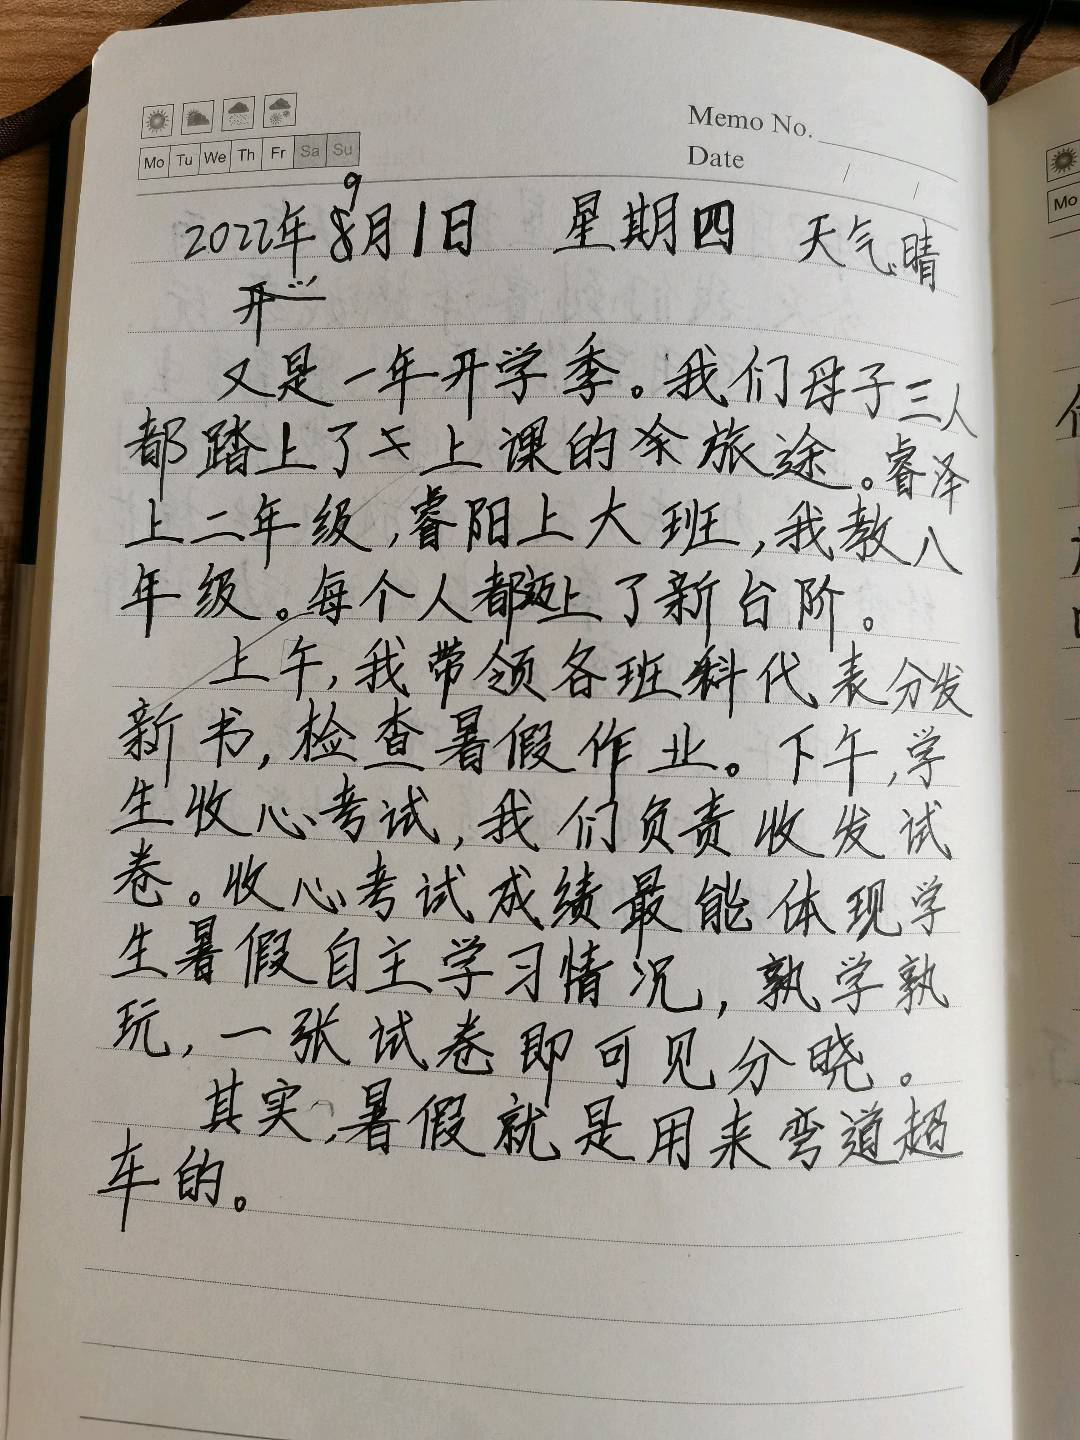 Memo No.
Mo Tu We Th Fr Sa Su
Date / /
2022年9月1日 星期四 天气晴
开
又是一年开学季。我们母子三人
都踏上了上课的旅途。睿泽
上二年级,睿阳上大班,我教八
年级。每个人都迈上了新台阶。
上午,我带领各班科代表分发
新书,检查暑假作业。下午,学
生收心考试,我们负责收发试
卷。收心考试成绩最能体现学
生暑假自主学习情况,孰学孰
玩,一张试卷即可见分晓。
其实,暑假就是用来弯道超
车的。
Mo